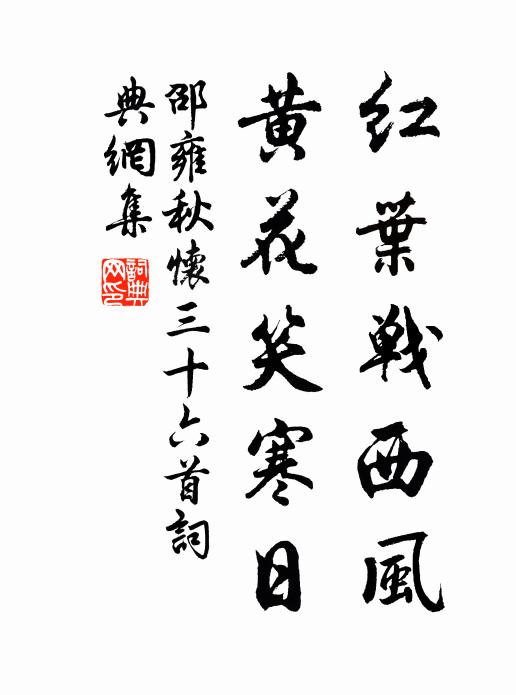 红葉戰西風
黄花笑寒日
邵雍秋懷三十六首詞
典網集
詞典
网印